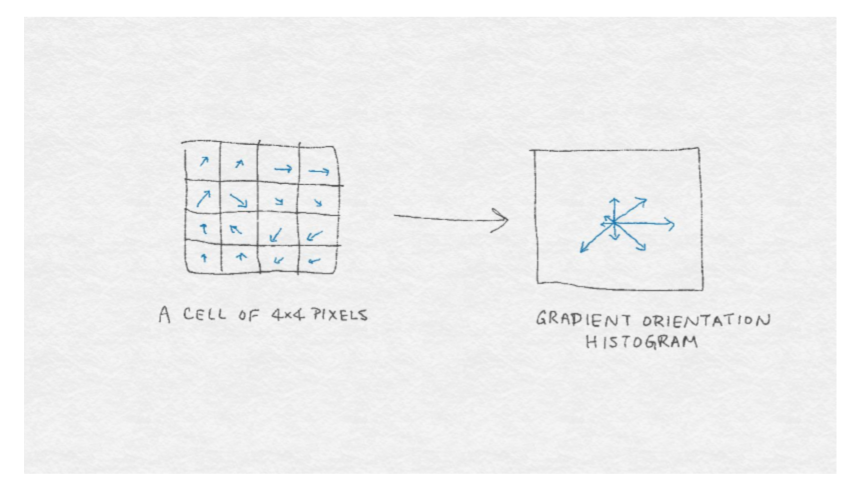 A CELL OF 4x4 PIXELS
GRADIENT ORIENTATION
HISTOGRAM